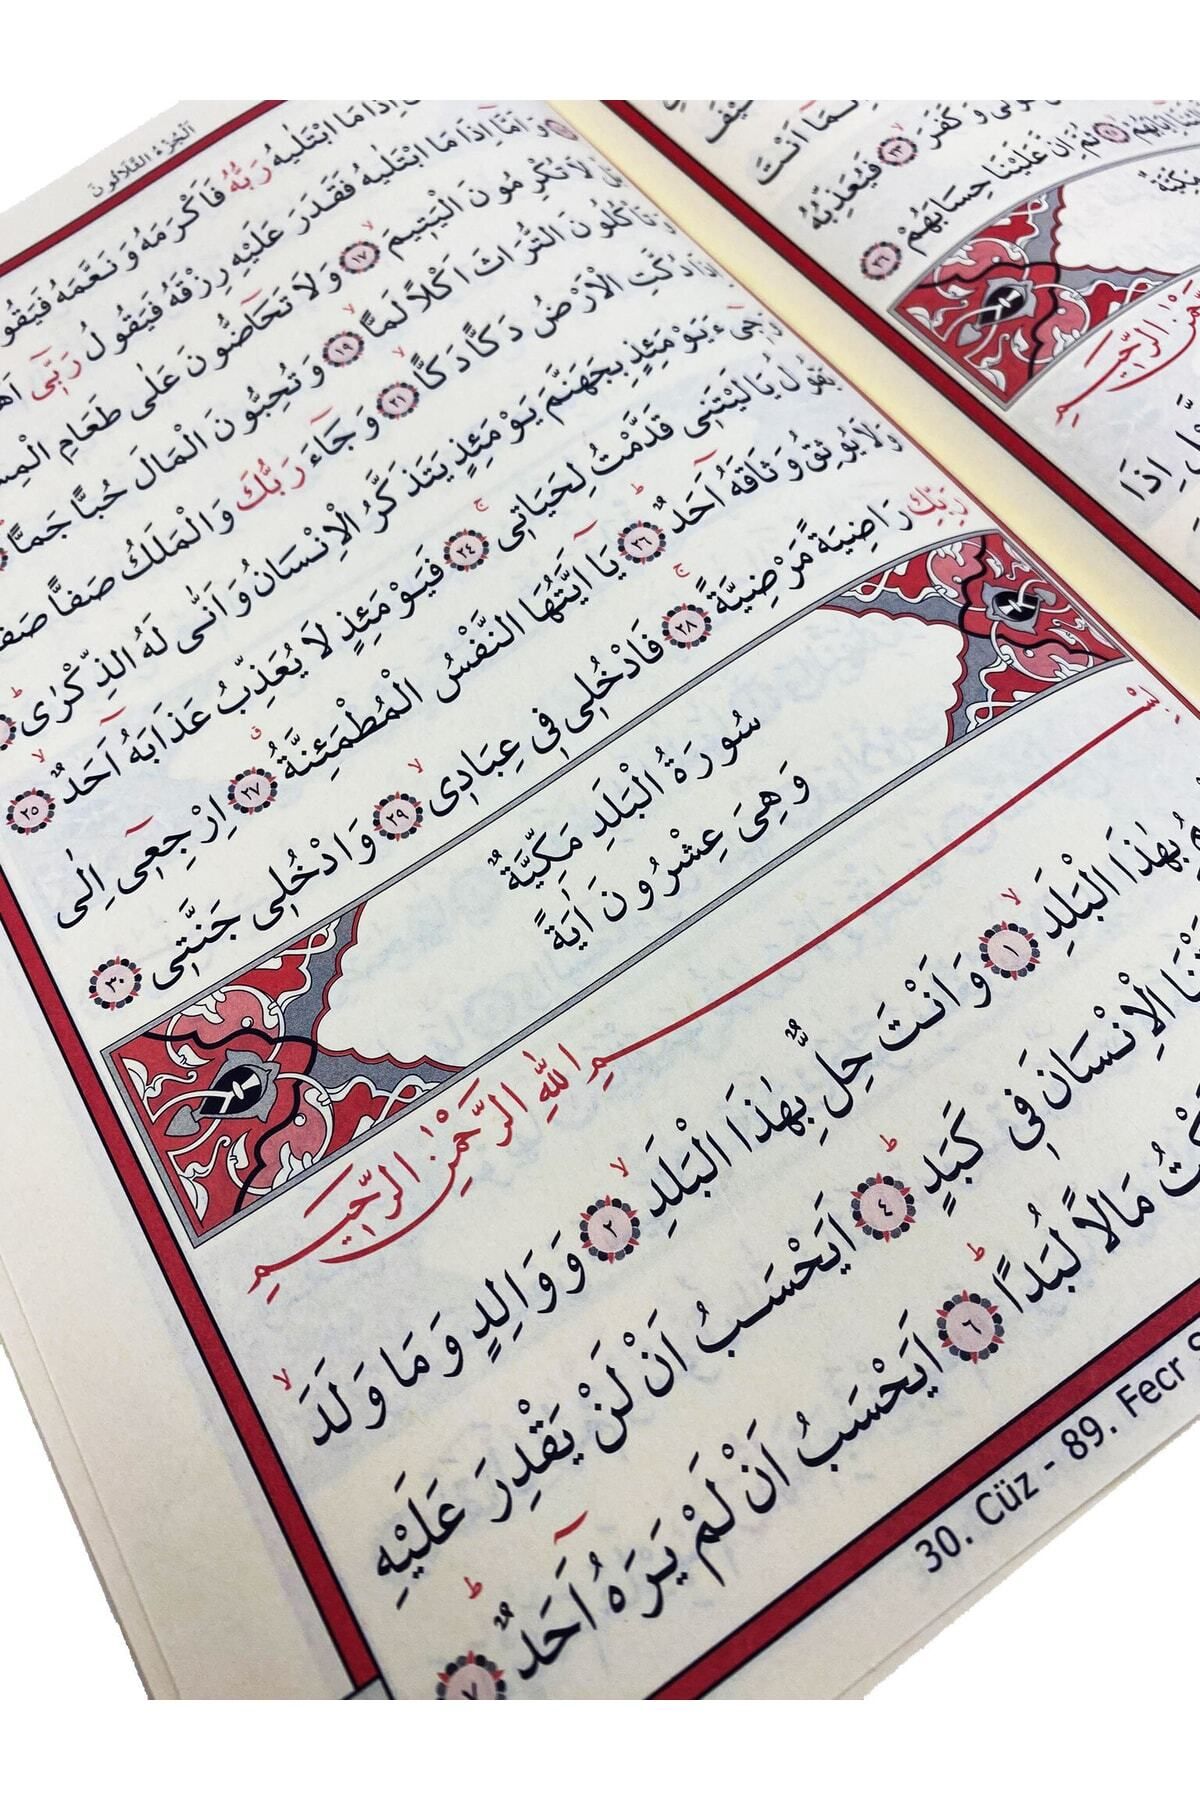 كَيْفَ
اِنَّمَا اَنْتَ
وَكَفَرَ ﴿٢٣﴾ فَيُعَذِّبُهُ
ثُمَّ اِنَّ عَلَيْنَا حِسَابَهُمْ ﴿٢٦﴾
مَكِّيَّةٌ
الرَّحِيمِ
اِذَا
اَلْجُزْءُ الثَّلَاثُونَ
اِذَا مَا ابْتَلٰيهُ رَبُّهُ فَاَكْرَمَهُ وَنَعَّمَهُ فَيَقُو
وَاَمَّٓا اِذَا مَا ابْتَلٰيهُ فَقَدَرَ عَلَيْهِ رِزْقَهُ فَيَقُولُ رَبّ۪ٓى
لَا تُكْرِمُونَ الْيَت۪يمَ ﴿١٧﴾ وَلَا تَحَٓاضُّونَ عَلٰى طَعَامِ
وَتَأْكُلُونَ التُّرَاثَ اَكْلًا لَمًّا ﴿١٩﴾ وَتُحِبُّونَ الْمَالَ حُبًّا جَمًّا
اِذَا دُكَّتِ الْاَرْضُ دَكًّا دَكًّا ﴿٢١﴾ وَجَٓاءَ رَبُّكَ وَالْمَلَكُ صَفًّا
وَج۪ٓىءَ يَوْمَئِذٍ بِجَهَنَّمَ يَوْمَئِذٍ يَتَذَكَّرُ الْاِنْسَانُ وَاَنّٰى لَهُ الذِّكْرٰى
يَقُولُ يَا لَيْتَن۪ى قَدَّمْتُ لِحَيَات۪ى ﴿٢٤﴾ فَيَوْمَئِذٍ لَا يُعَذِّبُ عَذَابَهُٓ اَحَدٌ ﴿٢٥﴾
وَلَا يُوثِقُ وَثَاقَهُٓ اَحَدٌ ﴿٢٦﴾ يَٓا اَيَّتُهَا النَّفْسُ الْمُطْمَئِنَّةُ ﴿٢٧﴾ اِرْجِع۪ٓى اِلٰى
رَبِّكِ رَاضِيَةً مَرْضِيَّةً ﴿٢٨﴾ فَادْخُل۪ى ف۪ى عِبَاد۪ى ﴿٢٩﴾ وَادْخُل۪ى جَنَّت۪ى ﴿٣٠﴾
سُورَةُ الْبَلَدِ مَكِّيَّةٌ
وَهِىَ عِشْرُونَ اٰيَةً
بِسْمِ اللّٰهِ الرَّحْمٰنِ الرَّحِيمِ
بِهٰذَا الْبَلَدِ ﴿١﴾ وَاَنْتَ حِلٌّ بِهٰذَا الْبَلَدِ ﴿٢﴾ وَوَالِدٍ وَمَا وَلَدَ
الْاِنْسَانَ ف۪ى كَبَدٍ ﴿٤﴾ اَيَحْسَبُ اَنْ لَنْ يَقْدِرَ عَلَيْهِ
مَالًا لُبَدًا ﴿٦﴾ اَيَحْسَبُ اَنْ لَمْ يَرَهُٓ اَحَدٌ ﴿٧﴾
30. Cüz - 89. Fecr